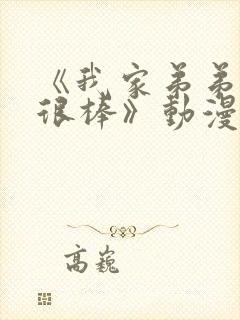 《我家弟弟
很棒》動漫
高巍